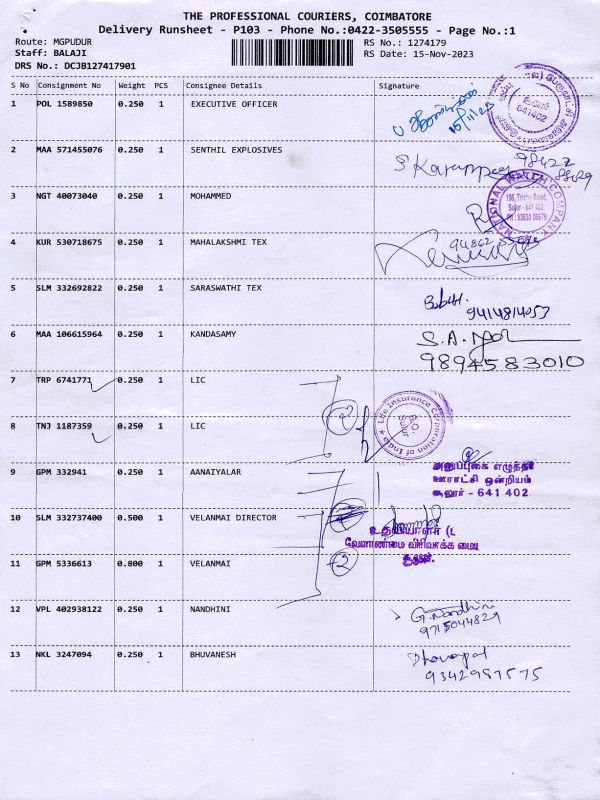 THE PROFESSIONAL COURIERS, COIMBATORE
Delivery Runsheet - P103 - Phone No.:0422-3505555 - Page No.:1
Route: MGPUDUR
Staff: BALAJI
DRS No.: DCJB127417901
RS No.: 1274179
RS Date: 15-Nov-2023
S No Consignment No Weight PCS Consignee Details Signature
1 POL 1589850 0.250 1 EXECUTIVE OFFICER
15/11/23
641402
2 MAA 571455076 0.250 1 SENTHIL EXPLOSIVES
3 NGT 40073040 0.250 1 MOHAMMED
NATIONAL WATCH COMPANY
196, Trichy Road,
Sulur - 641 402.
4 KUR 530718675 0.250 1 MAHALAKSHMI TEX
5 SLM 332692822 0.250 1 SARASWATHI TEX
6 MAA 106615964 0.250 1 KANDASAMY
9894583010
7 TRP 6741771 0.250 1 LIC
2
Life Insurance Corporation of India
B.O.
Sulur
8 TNJ 1187359 0.250 1 LIC
9 GPM 332941 0.250 1 AANAIYALAR
ஊராட்சி ஒன்றியம்
சூலூர் - 641 402.
10 SLM 332737400 0.500 1 VELANMAI DIRECTOR
11 GPM 5336613 0.800 1 VELANMAI
12 VPL 402938122 0.250 1 NANDHINI
G. Nandhini
9715044829
13 NKL 3247094 0.250 1 BHUVANESH
9342987575